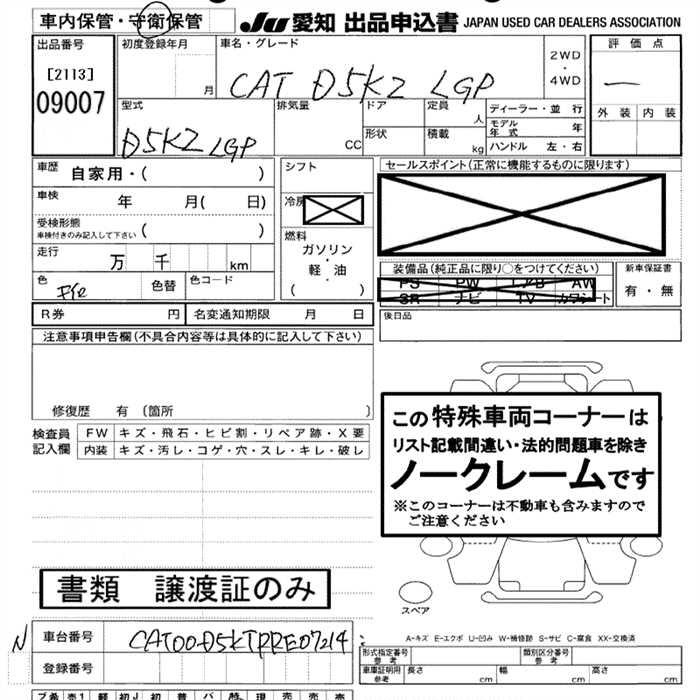 車内保管・守衛保管
JU 愛知 出品申込書 JAPAN USED CAR DEALERS ASSOCIATION
出品番号
[2113]
09007
初度登録年月
月
車名・グレード
CAT D5K2 LGP
2WD
・
4WD
評価点
外装 内装
型式
D5K2 LGP
排気量
CC
ドア
形状
定員
人
積載
kg
ディーラー・並行
モデル年式 年
ハンドル 左・右
車歴 自家用・( )
車検 年 月( 日)
受検形態
車検付きのみ記入して下さい ( )
走行 万 千 km
色
色替
色コード
R券 円
名変通知期限 月 日
シフト
冷房
燃料
ガソリン
・
軽・油
( )
セールスポイント(正常に機能するものに限ります)
装備品(純正品に限り○をつけてください)
PS PW エアB AW
SR ナビ TV カワシート
新車保証書
有・無
後日品
注意事項申告欄(不具合内容等は具体的に記入して下さい)
修復歴 有(箇所 )
検査員記入欄
FW キズ・飛石・ヒビ割・リペア跡・X要
内装 キズ・汚し・コゲ・穴・スレ・キレ・破し
この特殊車両コーナーは
リスト記載間違い・法的問題車を除き
ノークレームです
※このコーナーは不動車も含みますので
ご注意ください
スペア
書類 譲渡証のみ
N
車台番号 CAT00D5KTRRE07214
登録番号
A-キズ E-エクボ U-凹み W-補修跡 S-サビ C-腐食 XX-交換済
形式指定番号
参考
類別区分番号
参考
車庫証明用
参考
長さ cm
幅 cm
高さ cm